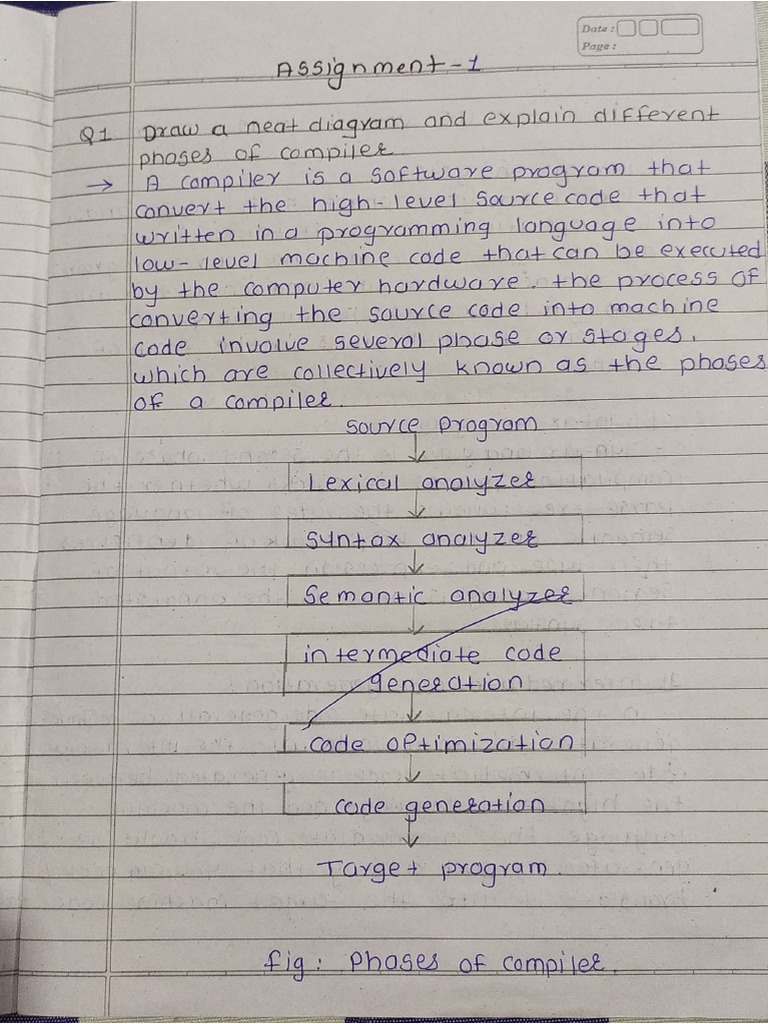 Date :
Page :
Assignment - 1
Q1 Draw a neat diagram and explain different
phases of compiler
→ A compiler is a software program that
convert the high-level source code that
written in a programming language into
low-level machine code that can be executed
by the computer hardware. the process of
converting the source code into machine
code involve several phase or stages,
which are collectively known as the phases
of a compiler.
source program
Lexical analyzer
Syntax analyzer
Semantic analyzer
intermediate code
generation
code optimization
code generation
Target program
fig : Phases of compiler.